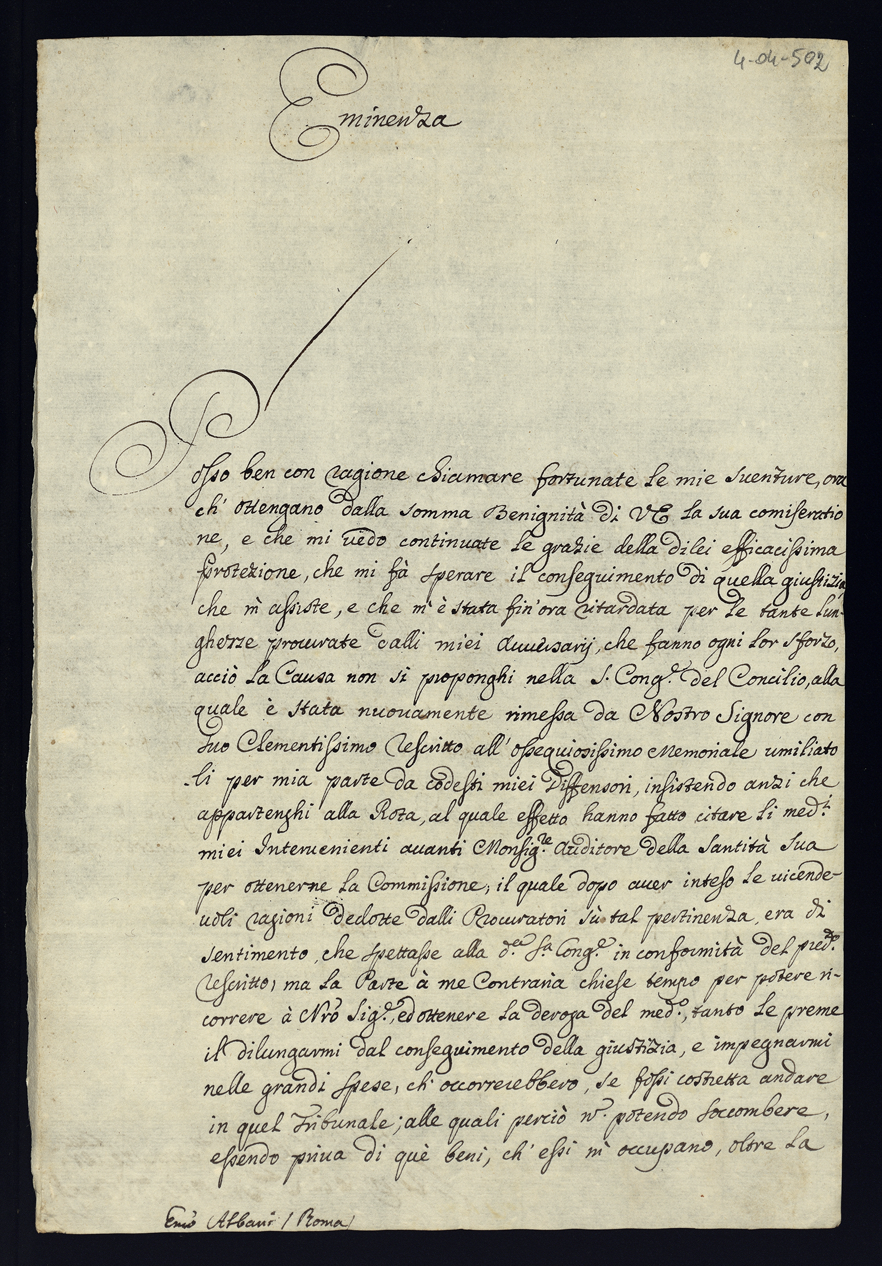 4-04-502
Eminenza
Posso ben con ragione chiamare fortunate le mie suenture, ora
ch' ottengano dalla somma Benignità di VE la sua comiseratio
ne, e che mi uedo continuate le grazie della dilei efficacissima
Protezione, che mi fà sperare il conseguimento di quella giustizia
che m' assiste, e che m' è stata fin' ora ritardata per le tante lun-
ghezze procurate dalli miei Auuersarij, che fanno ogni lor sforzo,
acciò la Causa non si proponghi nella S. Cong.e del Concilio, alla
quale è stata nuouamente rimessa da Nostro Signore con
suo Clementissimo Rescritto all' ossequiosissimo Memoriale umiliato
li per mia parte da codesti miei Diffensori, insistendo anzi che
appartenghi alla Rota, al quale effetto hanno fatto citare li med.i
miei Interuenienti auanti Monsig.re Auditore della Santità Sua
per ottenerne la Commissione; il quale dopo auer inteso le uicende-
uoli ragioni dedotte dalli Procuratori sù tal pertinenza, era di
sentimento, che spettasse alla d.a S.a Cong.e in conformità del pred.o
Rescritto; ma la Parte à me Contraria chiese tempo per potere ri-
correre à Nrõ Sig.e, ed ottenere la deroga del med.o, tanto le preme
il dilungarmi dal conseguimento della giustizia, e impegnarmi
nelle grandi spese, ch' occorrerebbero, se fossi costretta andare
in quel Tribunale; alle quali perciò n. potendo soccombere,
essendo priua di què beni, ch' essi m' occupano, oltre la
Emõ Albani / Roma /